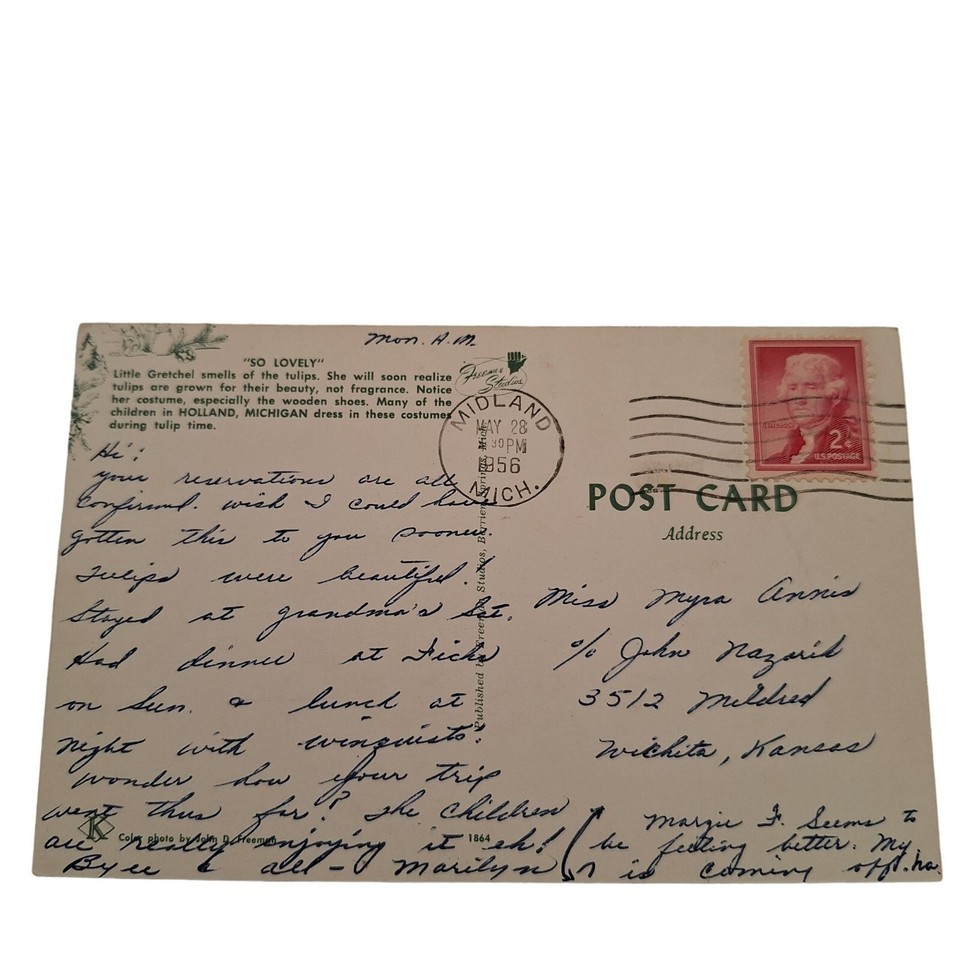 Mon. A.M.
"SO LOVELY"
Little Gretchel smells of the tulips. She will soon realize
tulips are grown for their beauty, not fragrance. Notice
her costume, especially the wooden shoes. Many of the
children in HOLLAND, MICHIGAN dress in these costumes
during tulip time.
Freeman Studios
MIDLAND
MAY 28
30 PM
1956
MICH.
2¢
U.S. POSTAGE
Hi!
your reservations are all
confirmed. wish I could have
gotten this to you sooner.
Tulips were beautiful!
Stayed at grandma's Sat.
Had dinner at
on Sun. & lunch at
night with Winquists.
wonder how your trip
went thus far? The children
are really enjoying it eh!
Byee & all - Marilyn
Published by Freeman Studios, Berrien Springs, Mich.
POST CARD
Address
Miss Myra Annis
c/o John
3512 Mildred
Wichita, Kansas
Margie F. Seems to
be feeling better. My
is coming off.
K
Color photo by John D. Freeman
1864